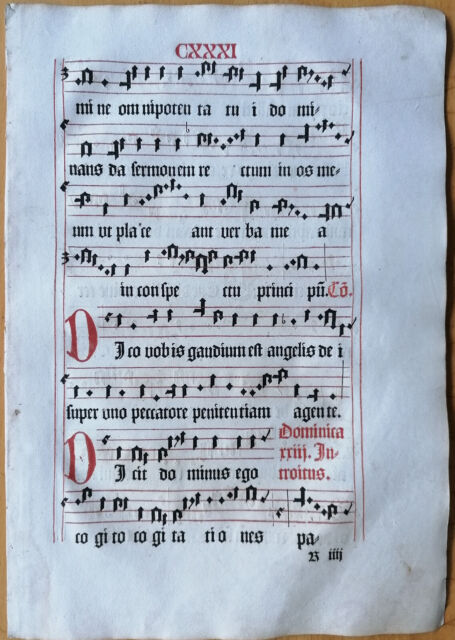 CXXXI
mi ne om nipoten ta tu i do mi-
nans da sermonem re ctum in os me-
um vt place ant ver ba me a
in con spe ctu princi pū. Cō.
DI co vob is gaudium est angelis de i
super vno peccatore peniten tiam agen te.
Dominica
xxiij. In-
troitus.
DI cit do minus ego
co gi to co gi ta ti o nes pa-
iiij